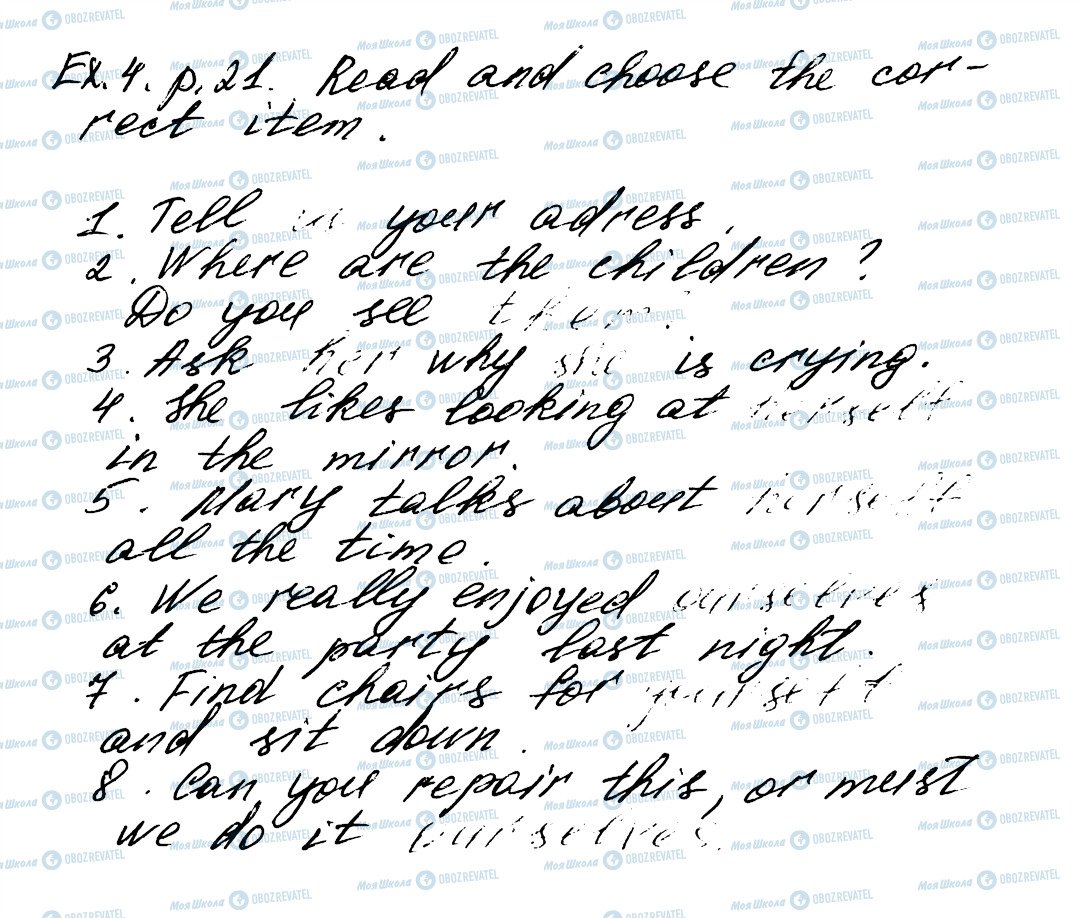 Ex. 4. p. 21. Read and choose the cor-
rect item.
1. Tell your adress.
2. Where are the children?
Do you see them?
3. Ask her why she is crying.
4. She likes looking at herself
in the mirror.
5. Mary talks about herself
all the time.
6. We really enjoyed ourselves
at the party last night.
7. Find chairs for yourself
and sit down.
8. Can you repair this, or must
we do it ourselves.